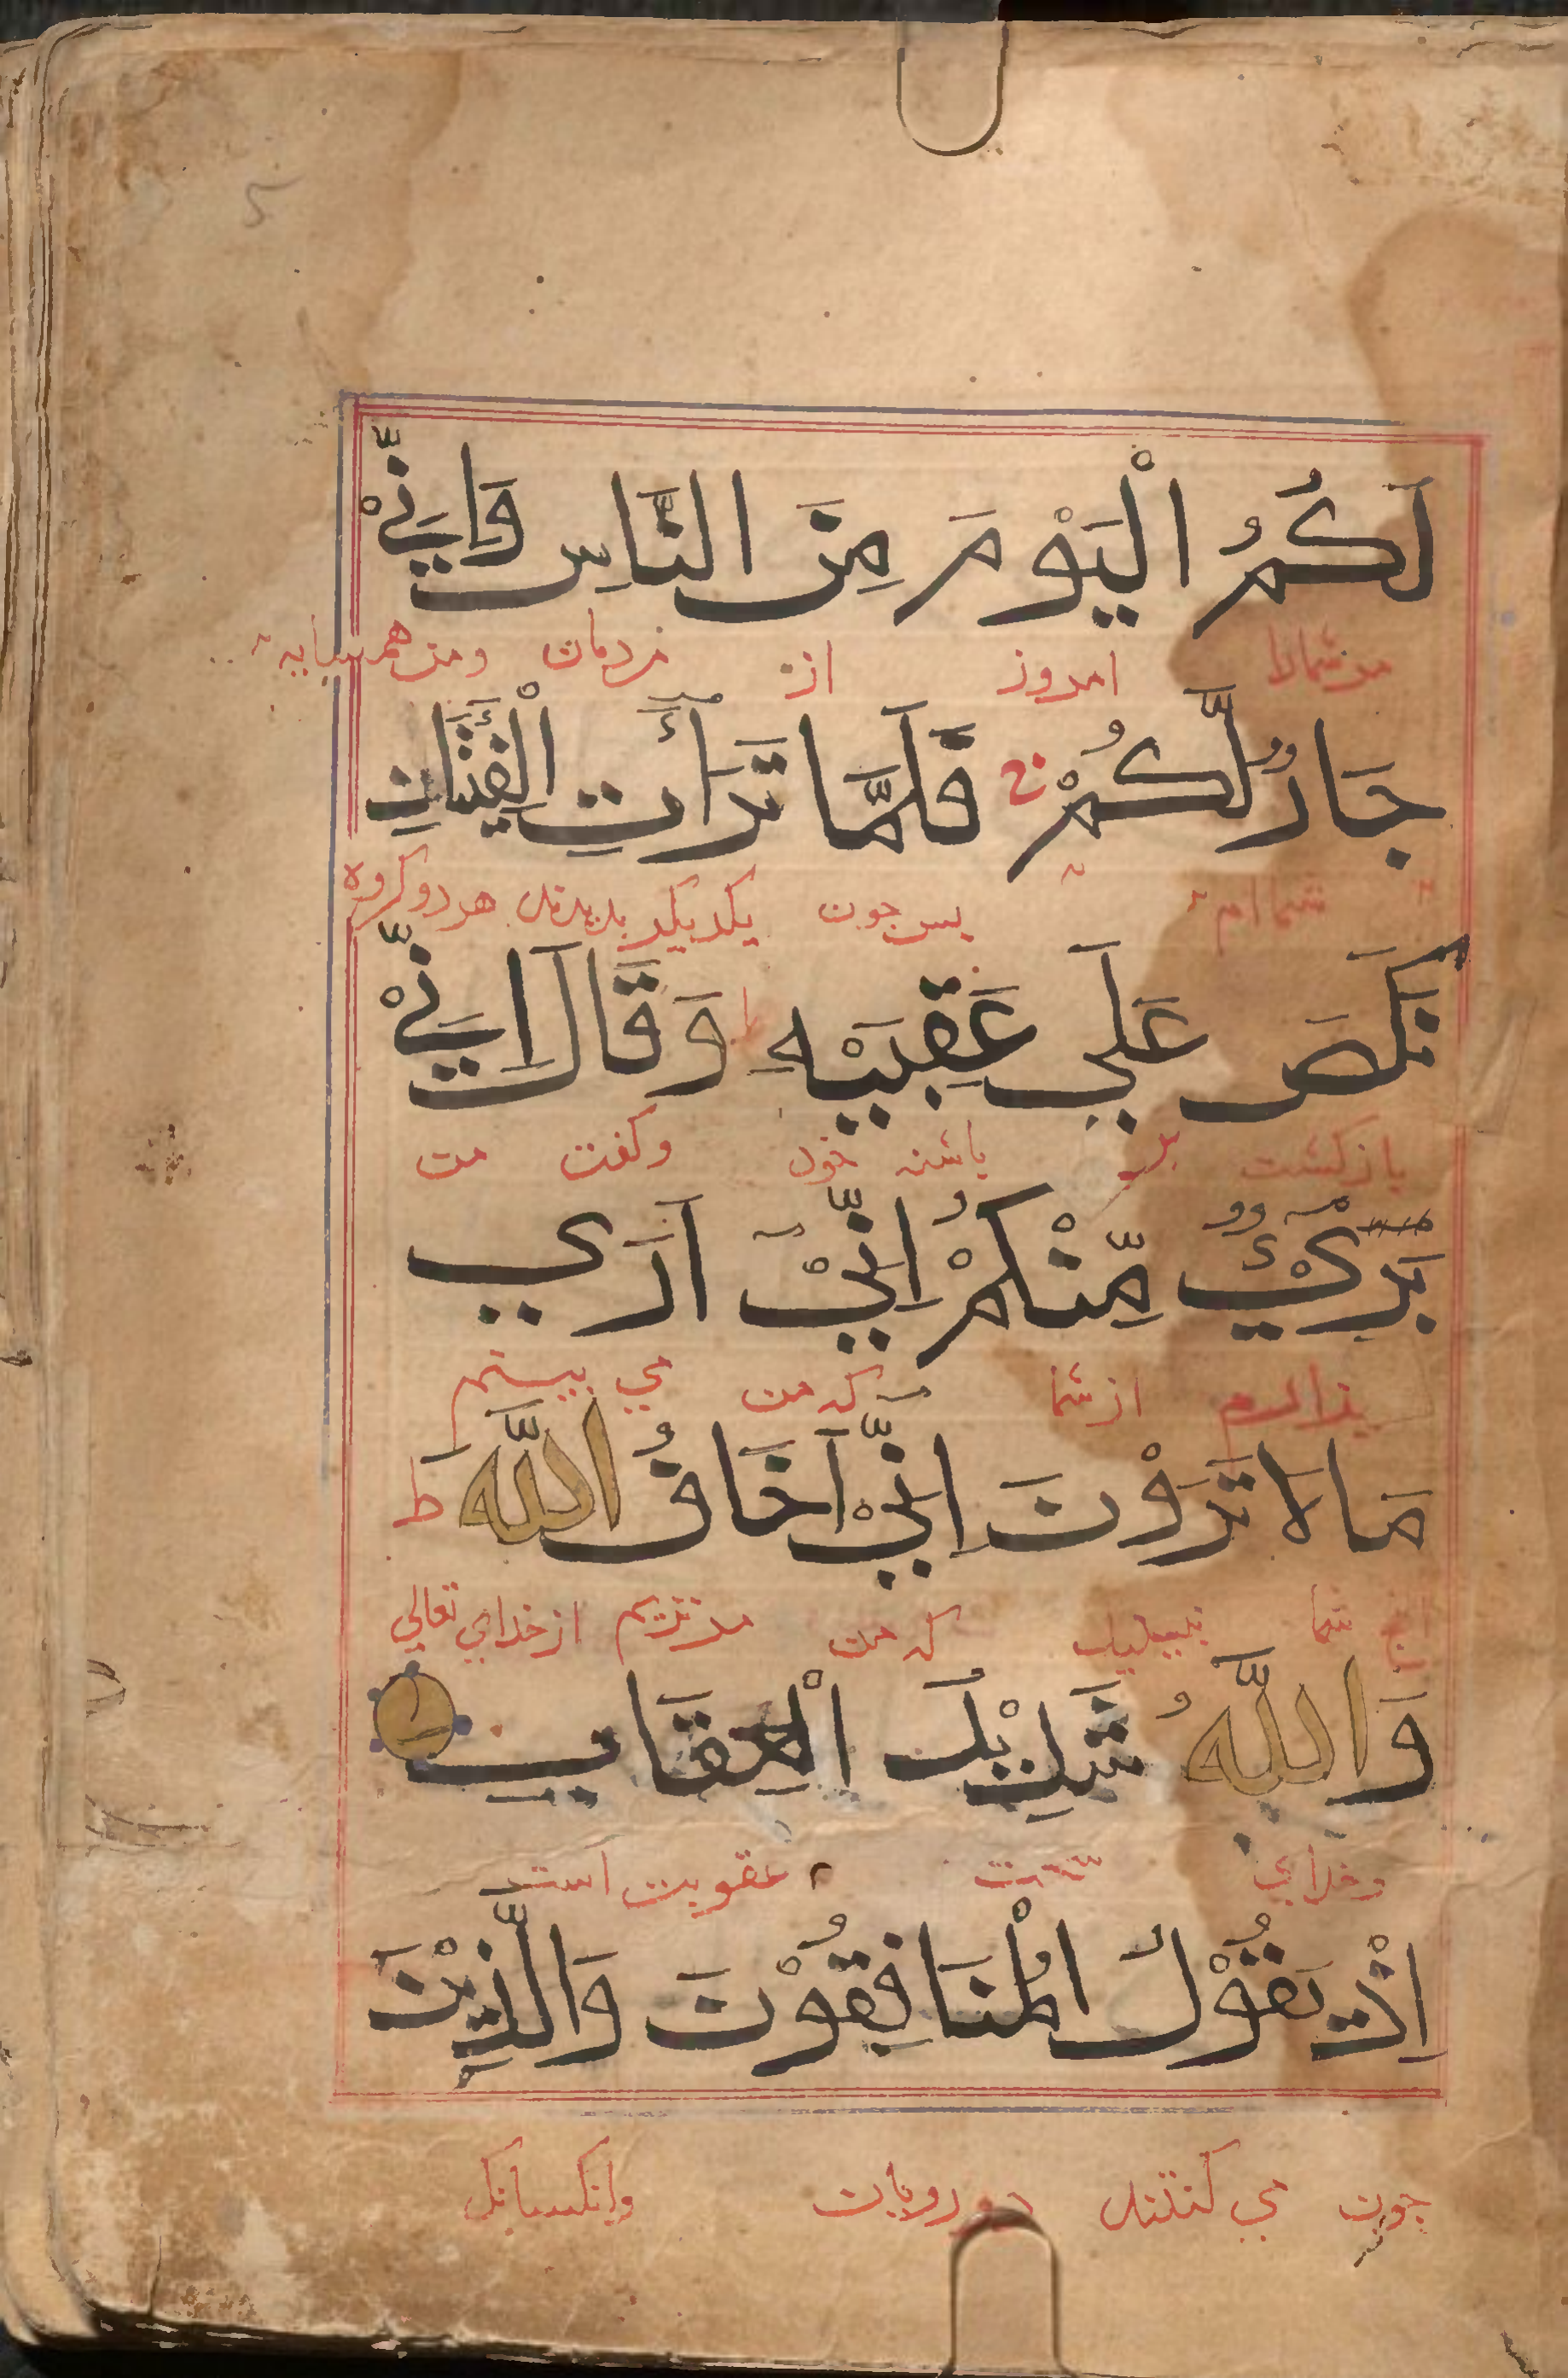 لَكُمُ الْيَوْمَ مِنَ النَّاسِ وَاِنِّيْ
مر شمارا امروز از مردمان ومن همسایه
جَارٌ لَّكُمْ ج فَلَمَّا تَرَآءَتِ الْفِئَتَانِ
شماام پس چون یکدیکر بدیدند هر دو کروه
نَكَصَ عَلَي عَقِبَيْهِ وَقَالَ اِنِّيْ
بازکشت بر پاشنه خود وکفت من
بَرِيْٓءٌ مِّنْكُمْ اِنِّيْٓ اَرَي
بیزارم از شما که من مي بینم
مَا لَا تَرَوْنَ اِنِّيْٓ اَخَافُ اللّٰهَ ط
انچ شما نبینید که من مترسم از خداي تعالي
وَاللّٰهُ شَدِيْدُ الْعِقَابِ
وخداي سخت عقوبت است
اِذْ يَقُوْلُ الْمُنَافِقُوْنَ وَالَّذِيْنَ
چون مي کفتند دورویان وانکسانک